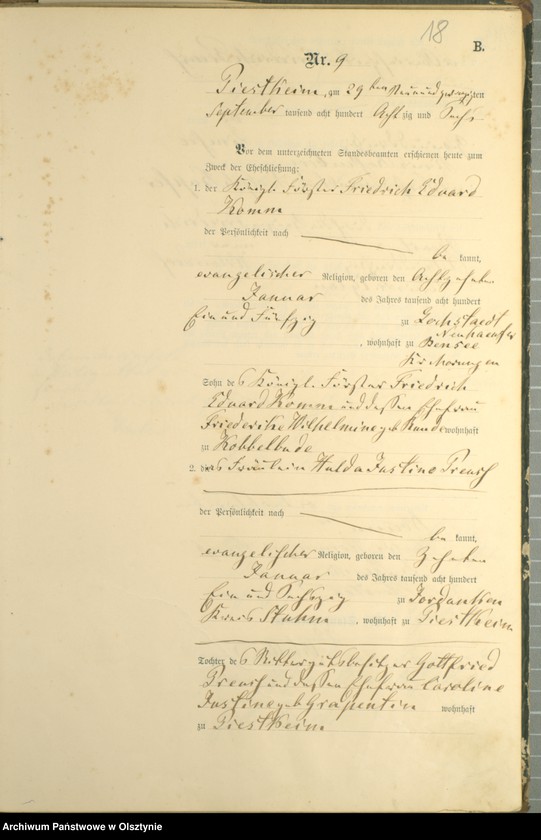 18
B.
Nr. 9
Piestkeim, am 29 ten Neunundzwanzigsten
September tausend acht hundert Acht zig und Sechs
Vor dem unterzeichneten Standesbeamten erschienen heute zum
Zweck der Eheschließung:
1. der Königl. Förster Friedrich Eduard
Komm
der Persönlichkeit nach
be kannt,
evangelischer Religion, geboren den Achtzehnten
Januar des Jahres tausend acht hundert
Ein und Fünfzig zu Lochstaedt
, wohnhaft zu Bensee
Kr Morungen
Sohn des Königl. Förster Friedrich
Eduard Komm und dessen Ehefrau
Friederike Wilhelmine geb wohnhaft
zu Kobbelbude
2. die das Fräulein Hulda Justine Preusch
der Persönlichkeit nach
be kannt,
evangelischer Religion, geboren den Zehnten
Januar des Jahres tausend acht hundert
Ein und Sechszig zu Jordanken
Kreis Stuhm , wohnhaft zu Piestkeim
Tochter des Rittergutsbesitzer Gottfried
Preusch und dessen Ehefrau Caroline
Justine geb Grapentin wohnhaft
zu Piestkeim
Archiwum Państwowe w Olsztynie